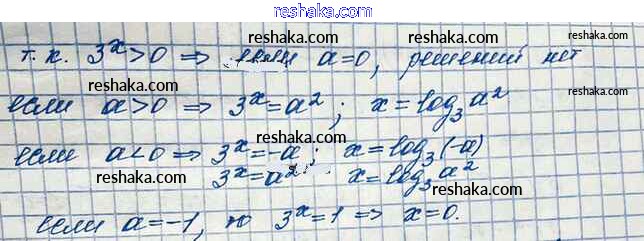 reshaka.com
т. к. 3^x > 0 ⇒ если a = 0, решений нет
reshaka.com reshaka.com reshaka.com
если a > 0 ⇒ 3^x = a²; x = log₃ a²
reshaka.com
если a < 0 ⇒ 3^x = -a; x = log₃ (-a)
reshaka.com 3^x = a² x = log₃ a² reshaka.com
reshaka.com
если a = -1, то 3^x = 1 ⇒ x = 0.
reshaka.com